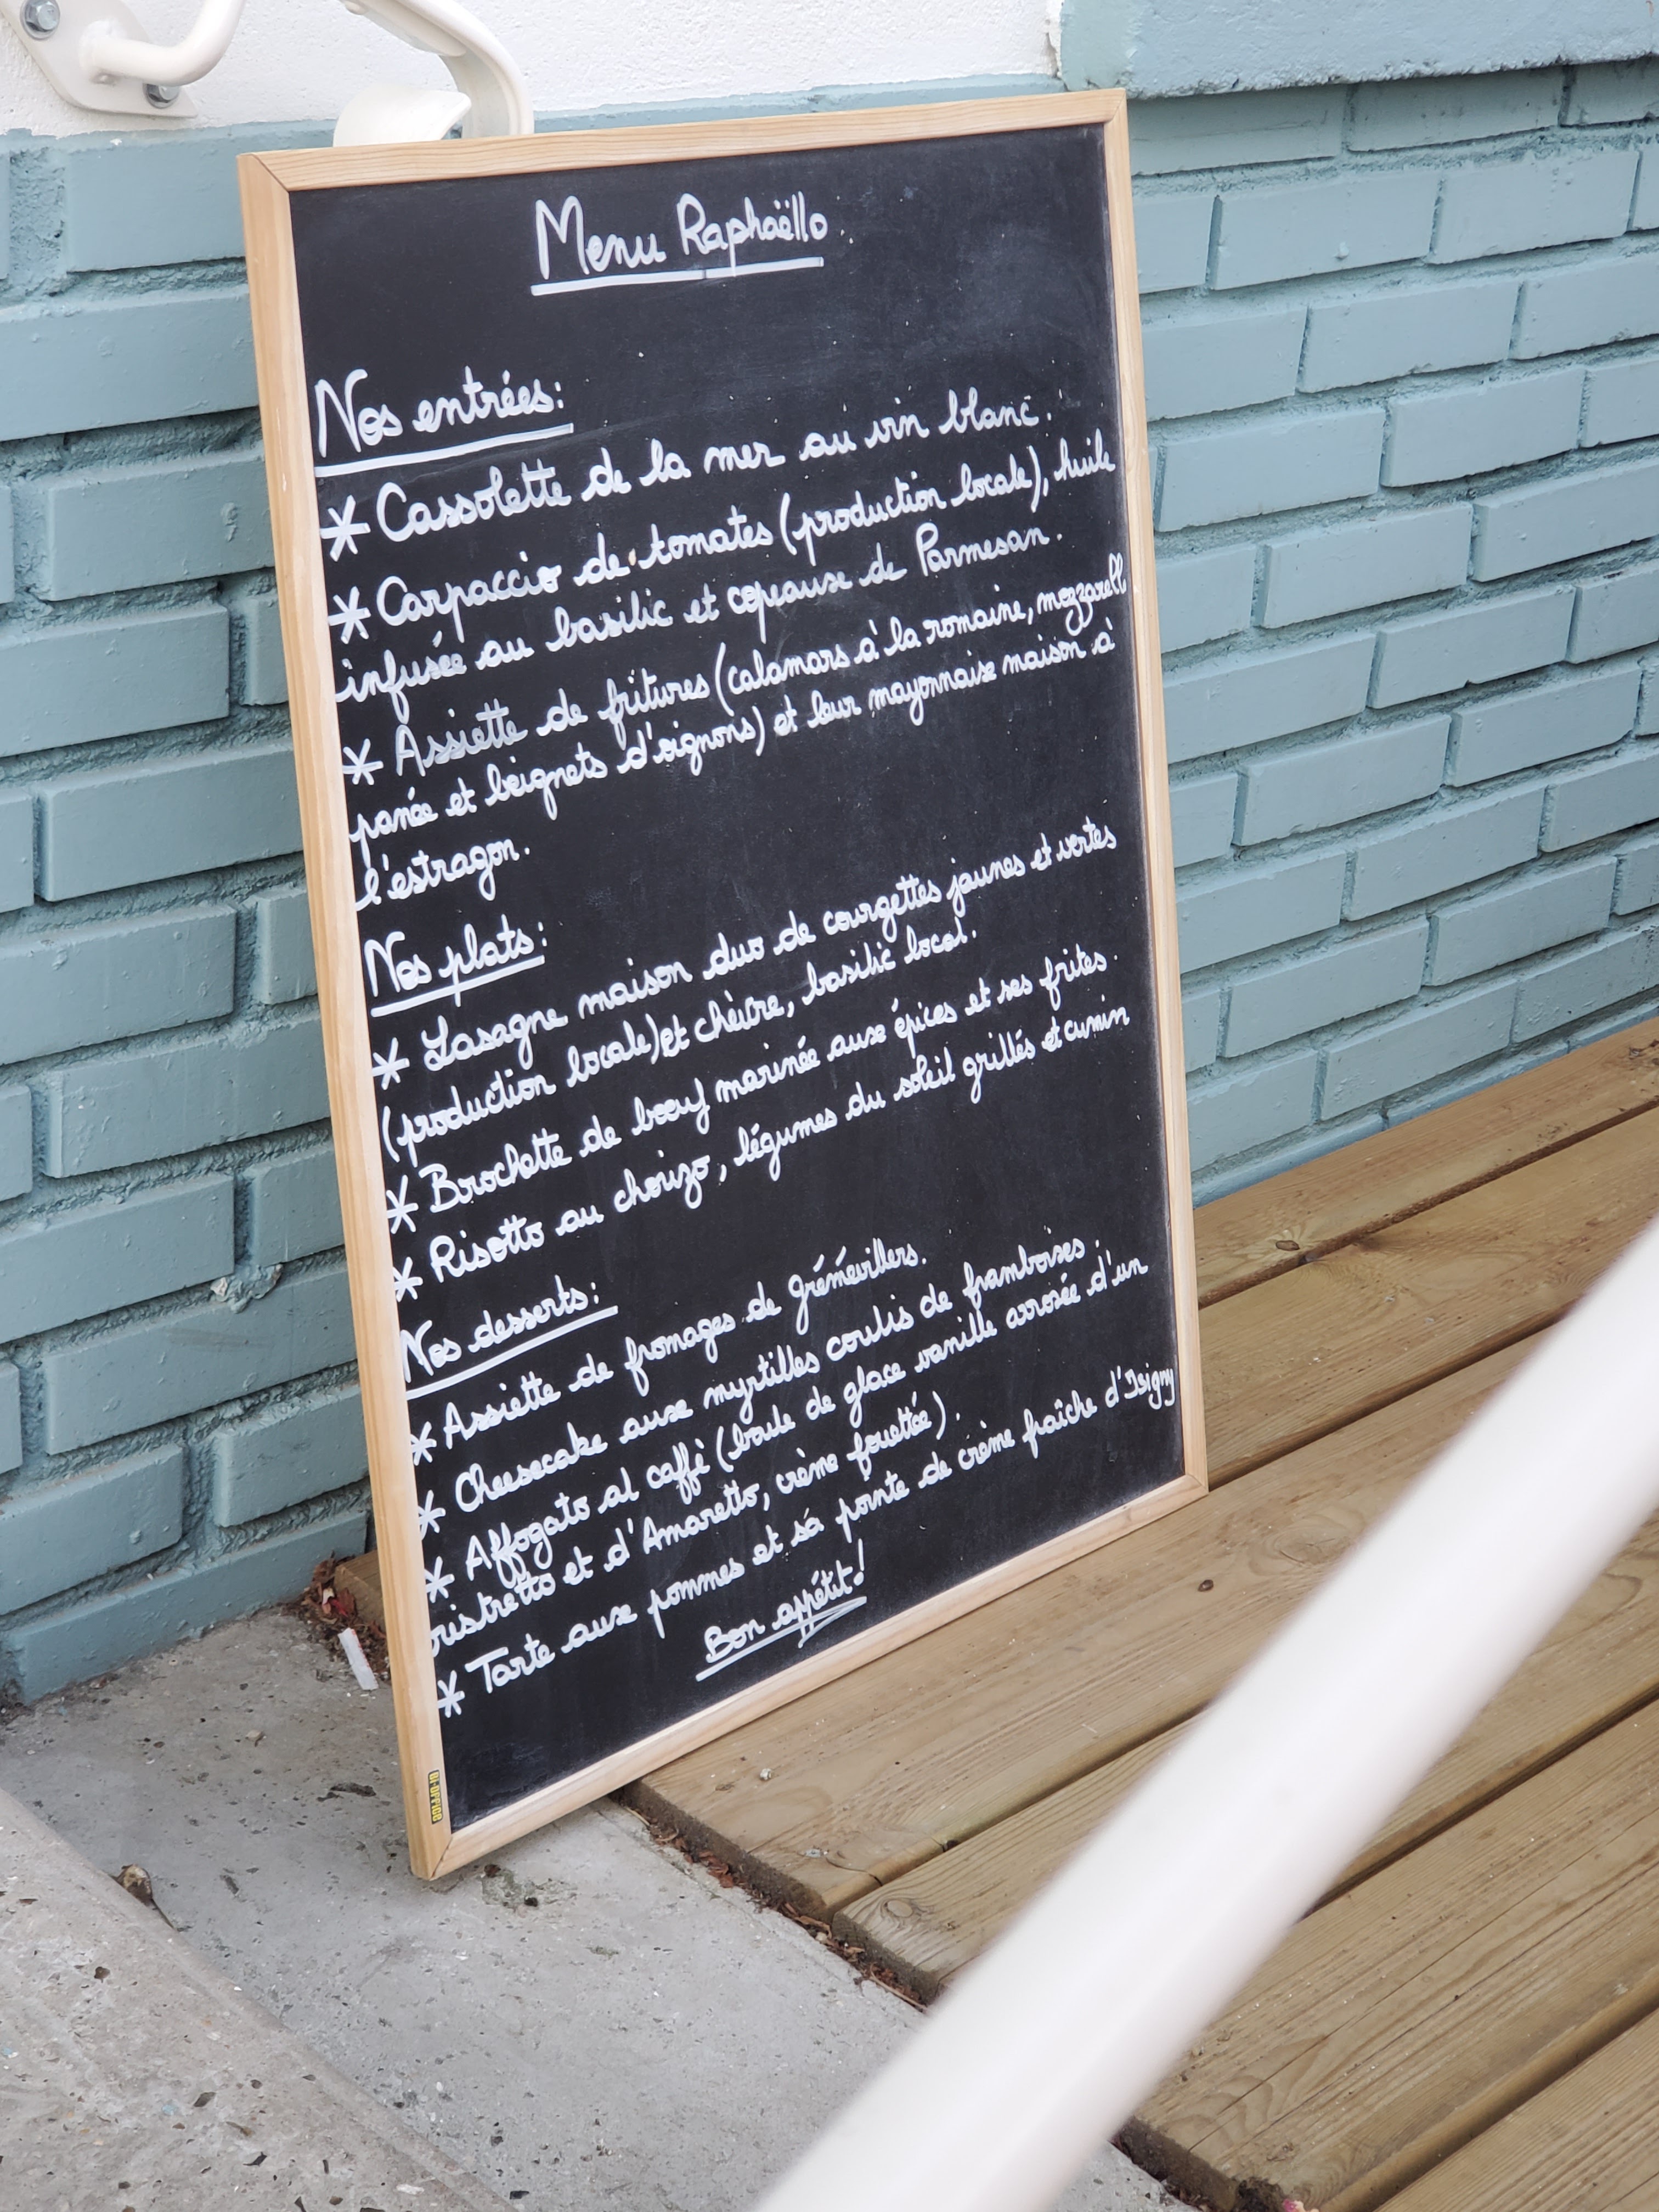 Menu Raphaëllo.
Nos entrées:
* Cassolette de la mer au vin blanc.
* Carpaccio de tomates (production locale), huile
infusée au basilic et copeaux de Parmesan.
* Assiette de fritures (calamars à la romaine, mozzarella
panée et beignets d'oignons) et leur mayonnaise maison à
l'estragon.
Nos plats:
* Lasagne maison duo de courgettes jaunes et vertes
(production locale) et chèvre, basilic local.
* Brochette de boeuf marinée aux épices et ses frites.
* Risotto au chorizo, légumes du soleil grillés et cumin
Nos desserts:
* Assiette de fromages de grémévillers.
* Cheesecake aux myrtilles coulis de framboises.
* Affogato al caffé (boule de glace vanille arrosée d'un
ristretto et d'Amaretto, crème fouettée).
* Tarte aux pommes et sa pointe de crème fraîche d'Isigny
Bon appétit!
BI-OFFICE